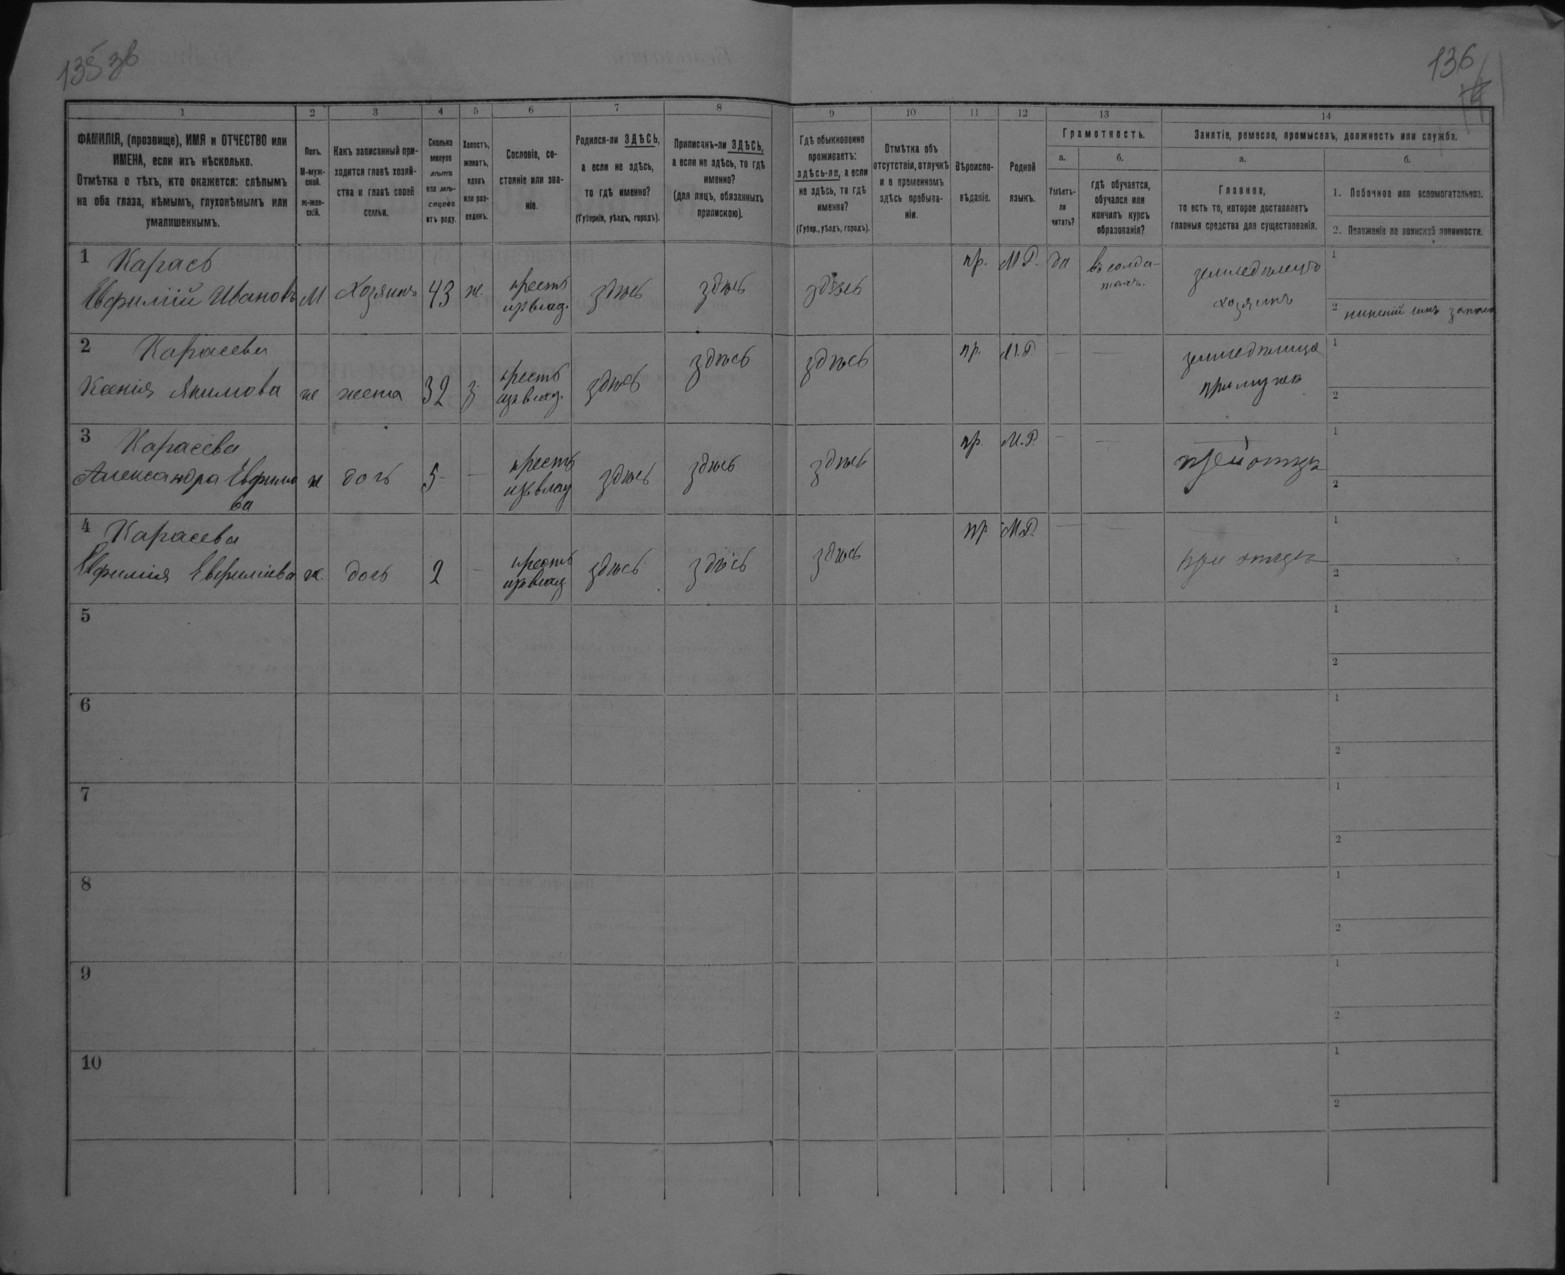 135 зв
136
1 2 3 4 5 6 7 8 9 10 11 12 13 14
ФАМИЛІЯ, (прозвище), ИМЯ и ОТЧЕСТВО или
ИМЕНА, если ихъ нѣсколько.
Отмѣтка о тѣхъ, кто окажется: слѣпымъ
на оба глаза, нѣмымъ, глухонѣмымъ или
умалишеннымъ.
Полъ.
М-муж-
ской.
ж-жен-
скій.
Какъ записанный при-
ходится главѣ хозяй-
ства и главѣ своей
семьи.
Сколько
минуло
лѣтъ
или мѣ-
сяцевъ
отъ роду.
Холостъ,
женатъ,
вдовъ
или раз-
веденъ.
Сословіе, со-
стояніе или зва-
ніе.
Родился-ли ЗДѢСЬ,
а если не здѣсь,
то гдѣ именно?
(Губернія, уѣздъ, городъ).
Приписанъ-ли ЗДѢСЬ,
а если не здѣсь, то гдѣ
именно?
(для лицъ, обязанныхъ
припискою).
Гдѣ обыкновенно
проживаетъ:
здѣсь-ли, а если
не здѣсь, то гдѣ
именно?
(Губер., уѣздъ, городъ).
Отмѣтка объ
отсутствіи, отлучкѣ
и о временномъ
здѣсь пребыва-
ніи.
Вѣроиспо-
вѣданіе.
Родной
языкъ.
Грамотность.
а.
Умѣетъ-
ли
читать?
б.
гдѣ обучается,
обучался или
кончилъ курсъ
образованія?
Занятіе, ремесло, промыселъ, должность или служба.
а.
Главное,
то есть то, которое доставляетъ
главныя средства для существованія.
б.
1. Побочное или вспомогательное.
2. Положеніе по воинской повинности.
1 Карась
Евфимій Ивановъ М Хозяинъ 43 ж крестъ
изъ влад. здѣсь здѣсь здѣсь пр. М.Р. да въ солда-
тахъ. земледѣлецъ
хозяинъ 1
2 нижній чинъ запаса
2 Карасева
Ксенія Якимова ж жена 32 з крестъ
изъ влад. здѣсь здѣсь здѣсь пр. М.Р. — — земледѣлица
при мужѣ 1
2
3 Карасева
Александра Евфимо
ва ж дочь 5 — крестъ
изъ влад здѣсь здѣсь здѣсь пр. М.Р. — — при отцѣ 1
2
4 Карасева
Евфимія Евфиміева ж. дочь 2 — крестъ
изъ влад здѣсь здѣсь здѣсь пр М.Р. — — при отцѣ 1
2
5 1
2
6 1
2
7 1
2
8 1
2
9 1
2
10 1
2